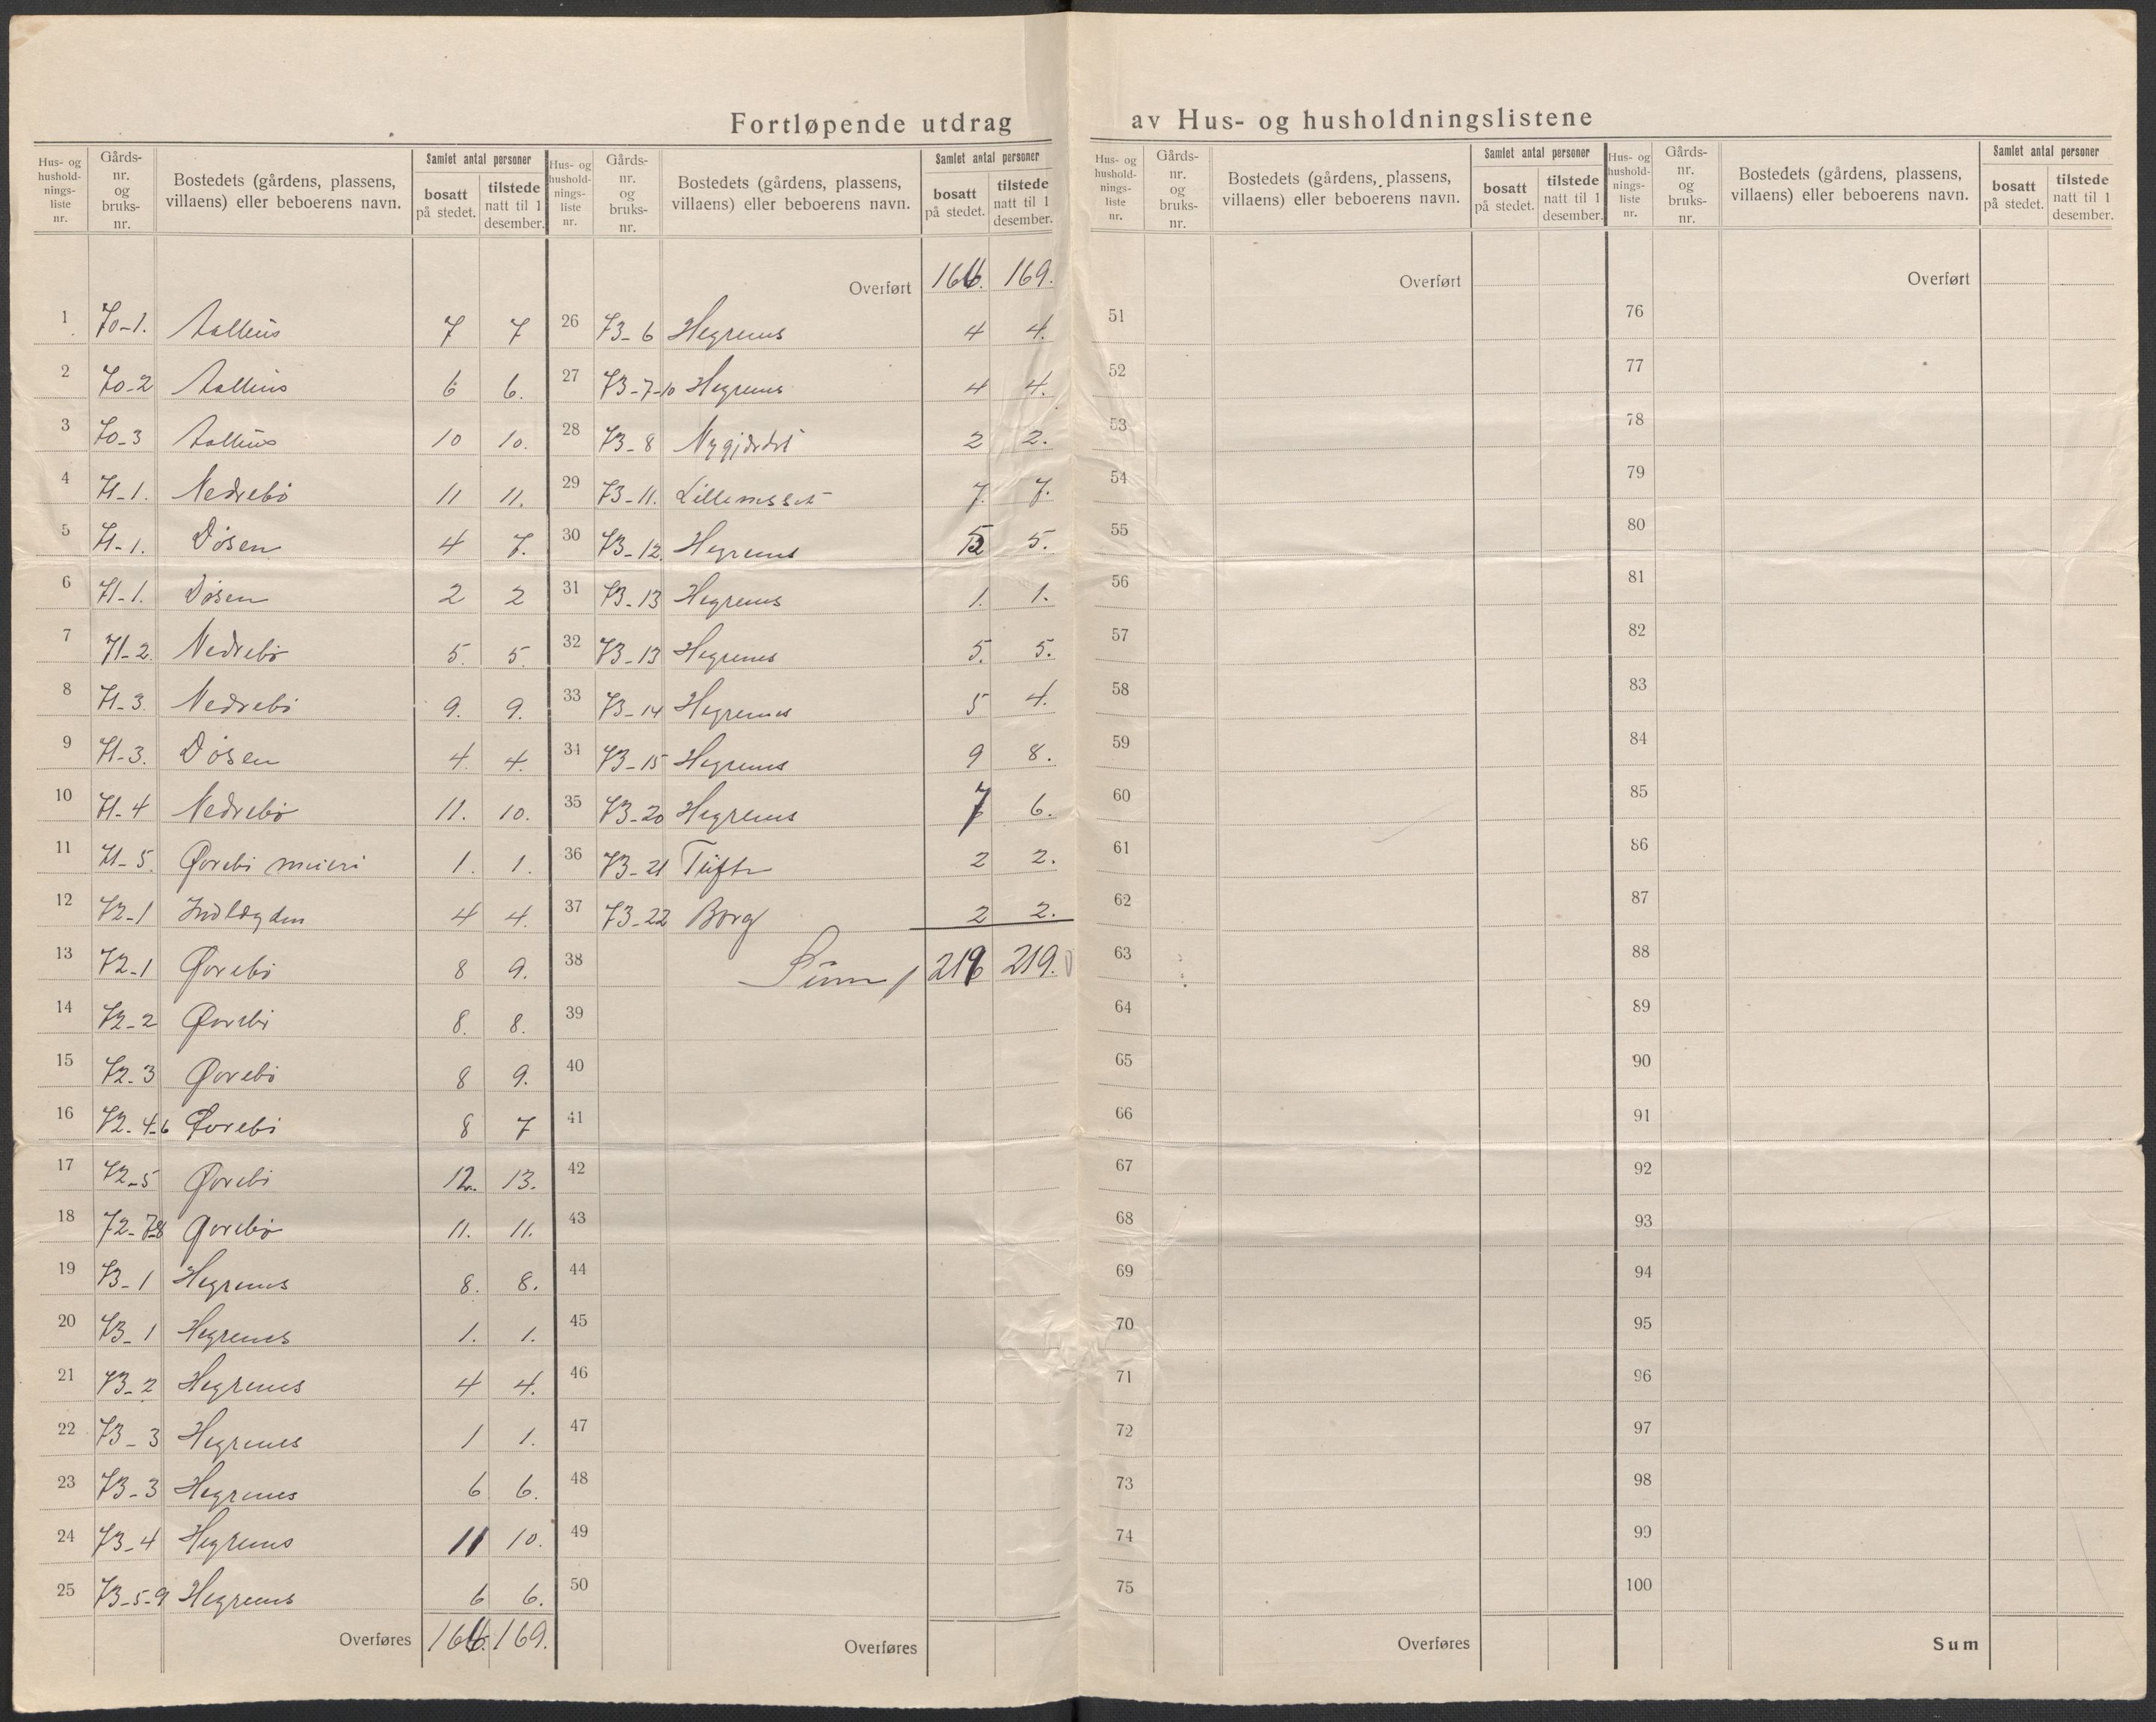 Fortløpende utdrag av Hus- og husholdningslistene
Hus- og hushold- nings- liste nr. Gårds- nr. og bruks- nr. Bostedets (gårdens, plassens, villaens) eller beboerens navn. Samlet antal personer bosatt på stedet. tilstede natt til 1 desember.
1 70-1. 7 7
2 70-2 6 6.
3 70-3 10 10.
4 71-1. Nedrebö 11 11.
5 71-1. Dösen 4 7.
6 71-1. Dösen 2 2
7 71-2. Nedrebö 5. 5.
8 71-3. Nedrebö 9. 9.
9 71-3. Dösen 4. 4.
10 71-4 Nedrebö 11. 10.
11 71-5. Øvrebö meieri 1. 1.
12 72-1 4 4.
13 72-1 Øvrebö 8 9.
14 72-2 Øvrebö 8. 8.
15 72-3 Øvrebö 8 9.
16 72-4-6 Øvrebö 8 7
17 72-5 Øvrebö 12. 13.
18 72-7-8 Øvrebö 11. 11.
19 73-1 Hegrenes 8. 8.
20 73-1 Hegrenes 1. 1.
21 73-2 Hegrenes 4 4.
22 73-3 Hegrenes 1 1.
23 73-3 Hegrenes 6 6.
24 73-4 Hegrenes 11 10.
25 73-5-9 Hegrenes 6 6.
Overføres 166. 169.
Hus- og hushold- nings- liste nr. Gårds- nr. og bruks- nr. Bostedets (gårdens, plassens, villaens) eller beboerens navn. Samlet antal personer bosatt på stedet. tilstede natt til 1 desember.
Overført 166. 169.
26 73-6 Hegrenes 4 4.
27 73-7-10 Hegrenes 4 4.
28 73-8 2 2.
29 73-11. 7. 7.
30 73-12. Hegrenes 5 5.
31 73-13 Hegrenes 1. 1.
32 73-13 Hegrenes 5. 5.
33 73-14 Hegrenes 5 4.
34 73-15 Hegrenes 9 8.
35 73-20 Hegrenes 7 6.
36 73-21 Tüfte 2 2.
37 73-22 Borg 2 2.
38 Süm 219 219.
39
40
41
42
43
44
45
46
47
48
49
50
Overføres
Hus- og hushold- nings- liste nr. Gårds- nr. og bruks- nr. Bostedets (gårdens, plassens, villaens) eller beboerens navn. Samlet antal personer bosatt på stedet. tilstede natt til 1 desember.
Overført
51
52
53
54
55
56
57
58
59
60
61
62
63
64
65
66
67
68
69
70
71
72
73
74
75
Overføres
Hus- og hushold- nings- liste nr. Gårds- nr. og bruks- nr. Bostedets (gårdens, plassens, villaens) eller beboerens navn. Samlet antal personer bosatt på stedet. tilstede natt til 1 desember.
Overført
76
77
78
79
80
81
82
83
84
85
86
87
88
89
90
91
92
93
94
95
96
97
98
99
100
Sum